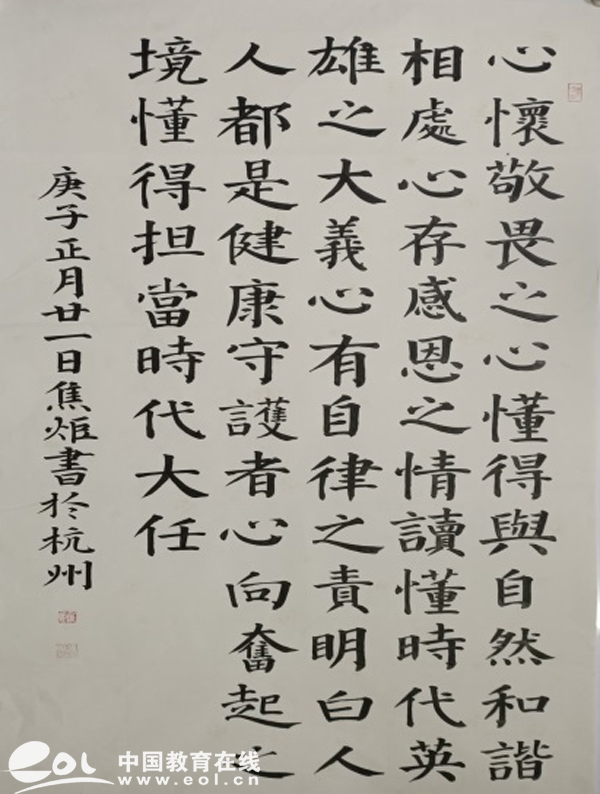 心懷敬畏之心懂得與自然和諧
相處心存感恩之情讀懂時代英
雄之大義心有自律之責明白人
人都是健康守護者心向奮起之
境懂得担當時代大任
庚子正月廿一日焦炬書於杭州
中国教育在线
www.eol.cn